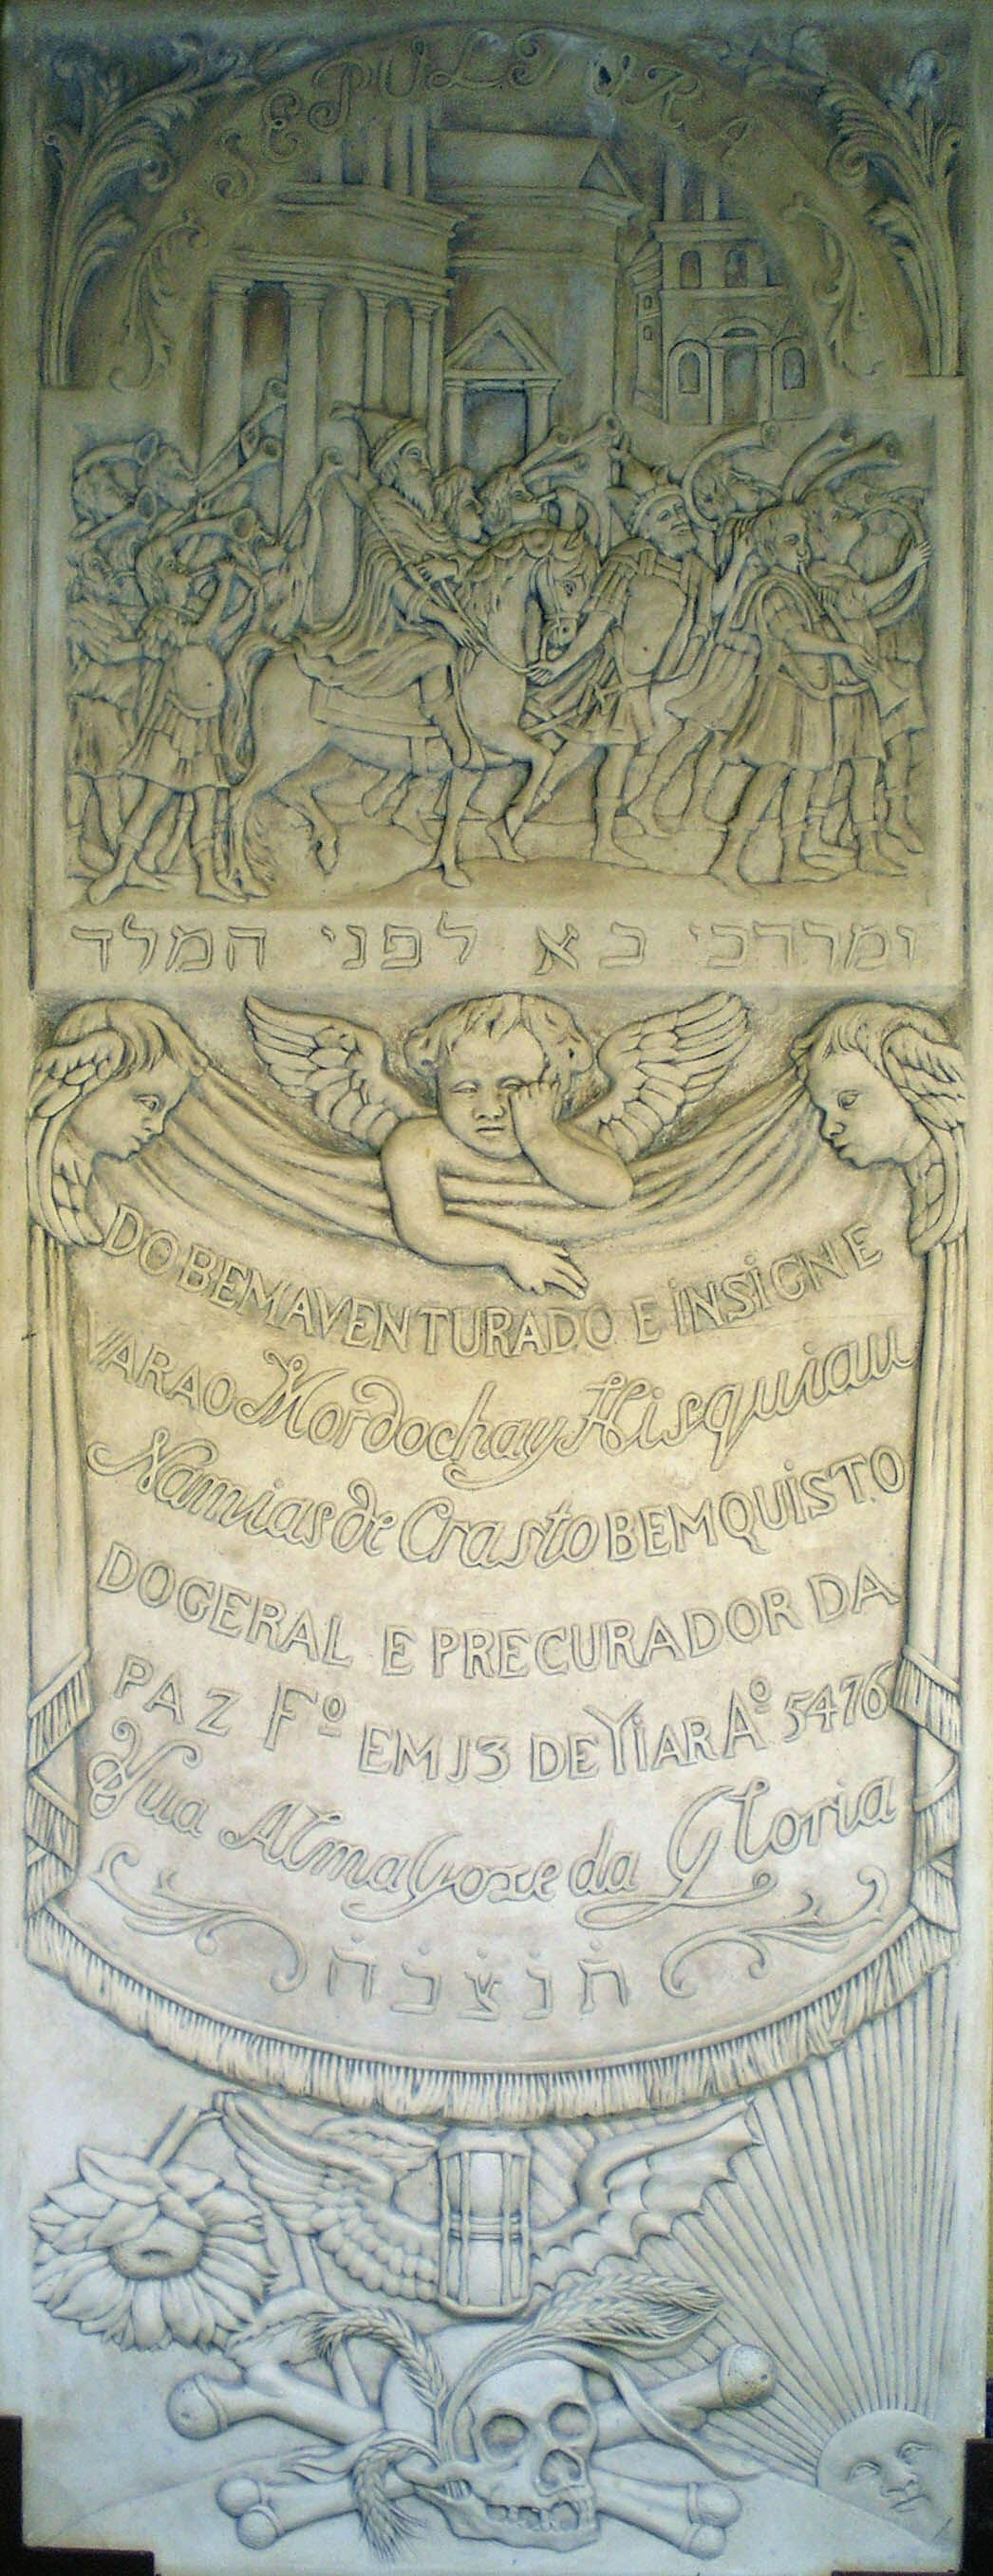 SEPULTURA
ומרדכי בא לפני המלך
DO BEMAVENTURADO E INSIGNE
VARAO Mordochay Hisquiau
Namias de Crasto BEMQUISTO
DO GERAL E PRECURADOR DA
PAZ Fº EM 13 DE YIAR Aº 5476
Sua Alma Goze da Gloria
תנצבה